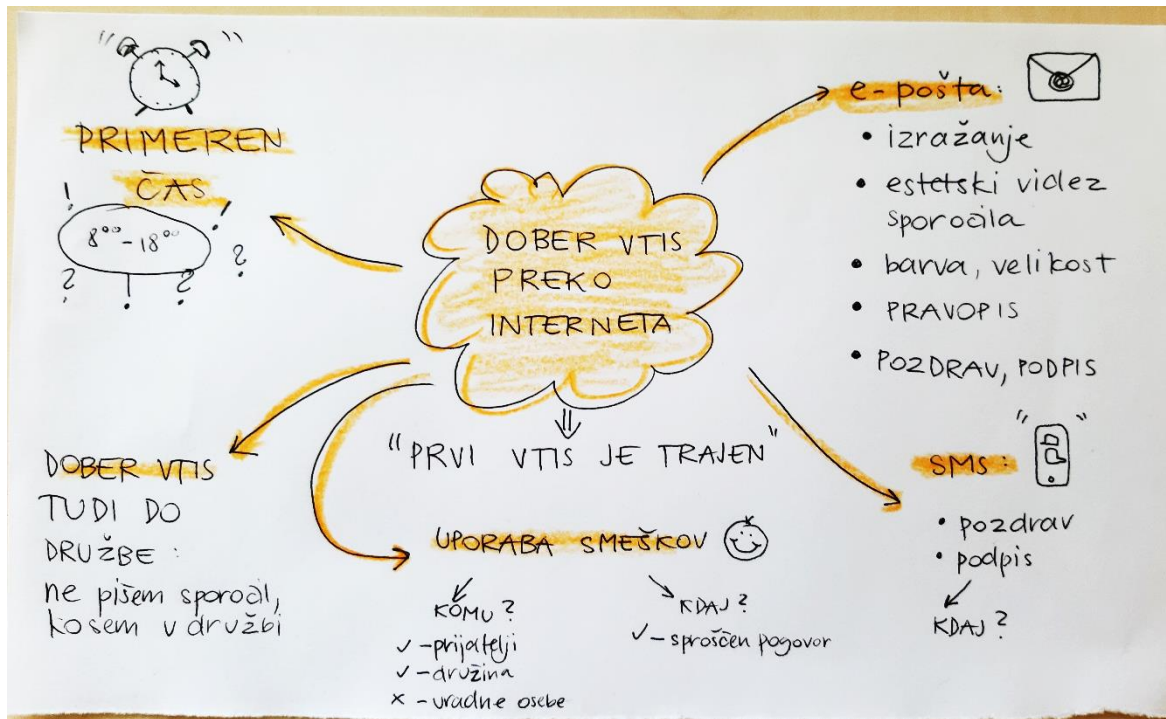 PRIMEREN
ČAS
! ! ?
8⁰⁰ - 18⁰⁰
? ! ?
DOBER VTIS
PREKO
INTERNETA
⇓
"PRVI VTIS JE TRAJEN"
e-pošta:
• izražanje
• estetski videz
sporočila
• barva, velikost
• PRAVOPIS
• POZDRAV, PODPIS
SMS:
• pozdrav
• podpis
KDAJ?
DOBER VTIS
TUDI DO
DRUŽBE:
ne pišem sporočil,
ko sem v družbi
UPORABA SMEŠKOV
KOMU?
✓ - prijatelji
✓ - družina
× - uradne osebe
KDAJ?
✓ - sproščen pogovor